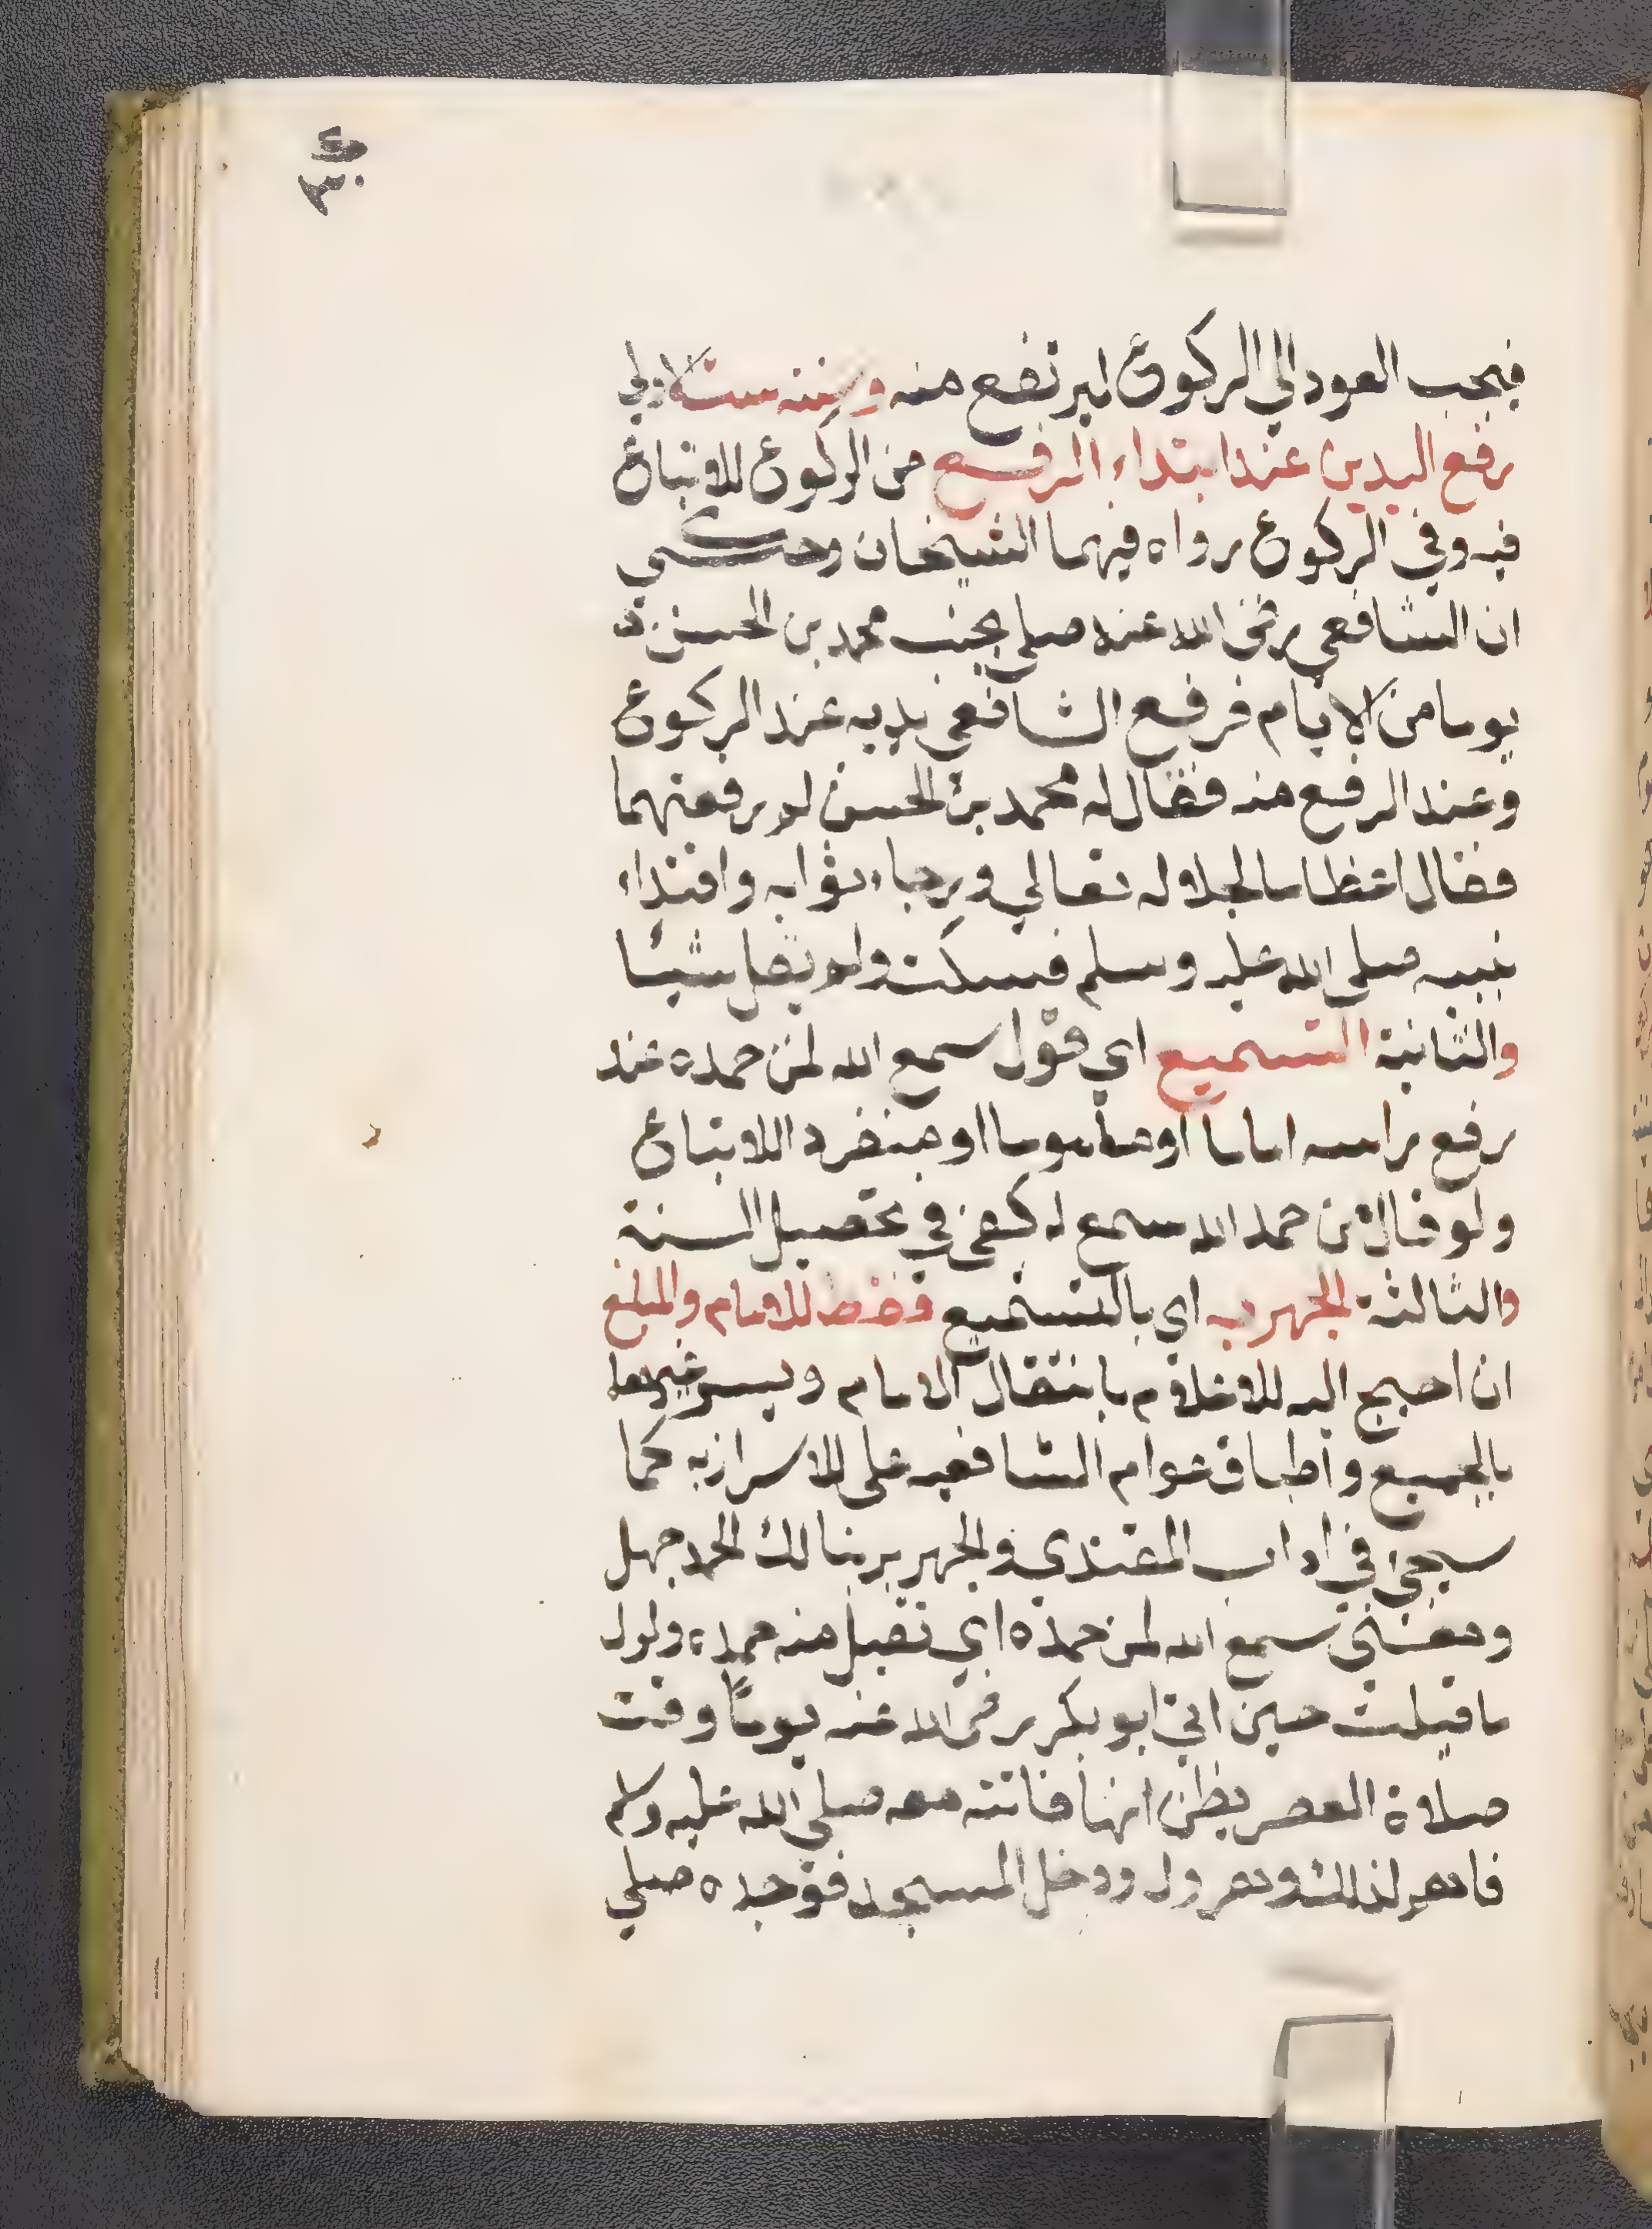 فيجب العود الي الركوع ليرتفع منه وسننه ست الاولي
رفع اليدين عند ابتداء الرفع من الركوع للاتباع
فيه وفي الركوع رواه فيهما الشيخان وحكي
ان الشافعي رضي الله عنه صلي بجنب محمد بن الحسن
يوما من الايام فرفع الشافعي يديه عند الركوع
وعند الرفع منه فقال له محمد بن الحسن لم رفعتهما
فقال اعظاما لجلاله تعالي ورجاء ثوابه واقتداء
بنبيه صلى الله عليه وسلم فسكت ولم يقل شيئا
والثانية التسميع اي قول سمع الله لمن حمده عند
رفع راسه اماما او ماموما او منفردا للاتباع
ولو قال من حمد الله سمع له كفي في تحصيل السنة
والثالثة الجهر به اي بالتسميع فقط للامام والمبلغ
ان احتيج اليه للاعلام بانتقال الامام ويسر غيرهما
بالجميع واطباق عوام الشافعيه على للاسرار به كما
سيجئ في اداب المقتدي والجهر بربنا لك الحمد جهل
ومعني سمع الله لمن حمده اي تقبل منه حمده واول
ما قيلت حين اتي ابو بكر رضى الله عنه يومًا وقت
صلاة العصر يظن انها فاتته معه صلي الله عليه وسلم
فاهتم لذلك وهرول ودخل المسجد فوجده صلي